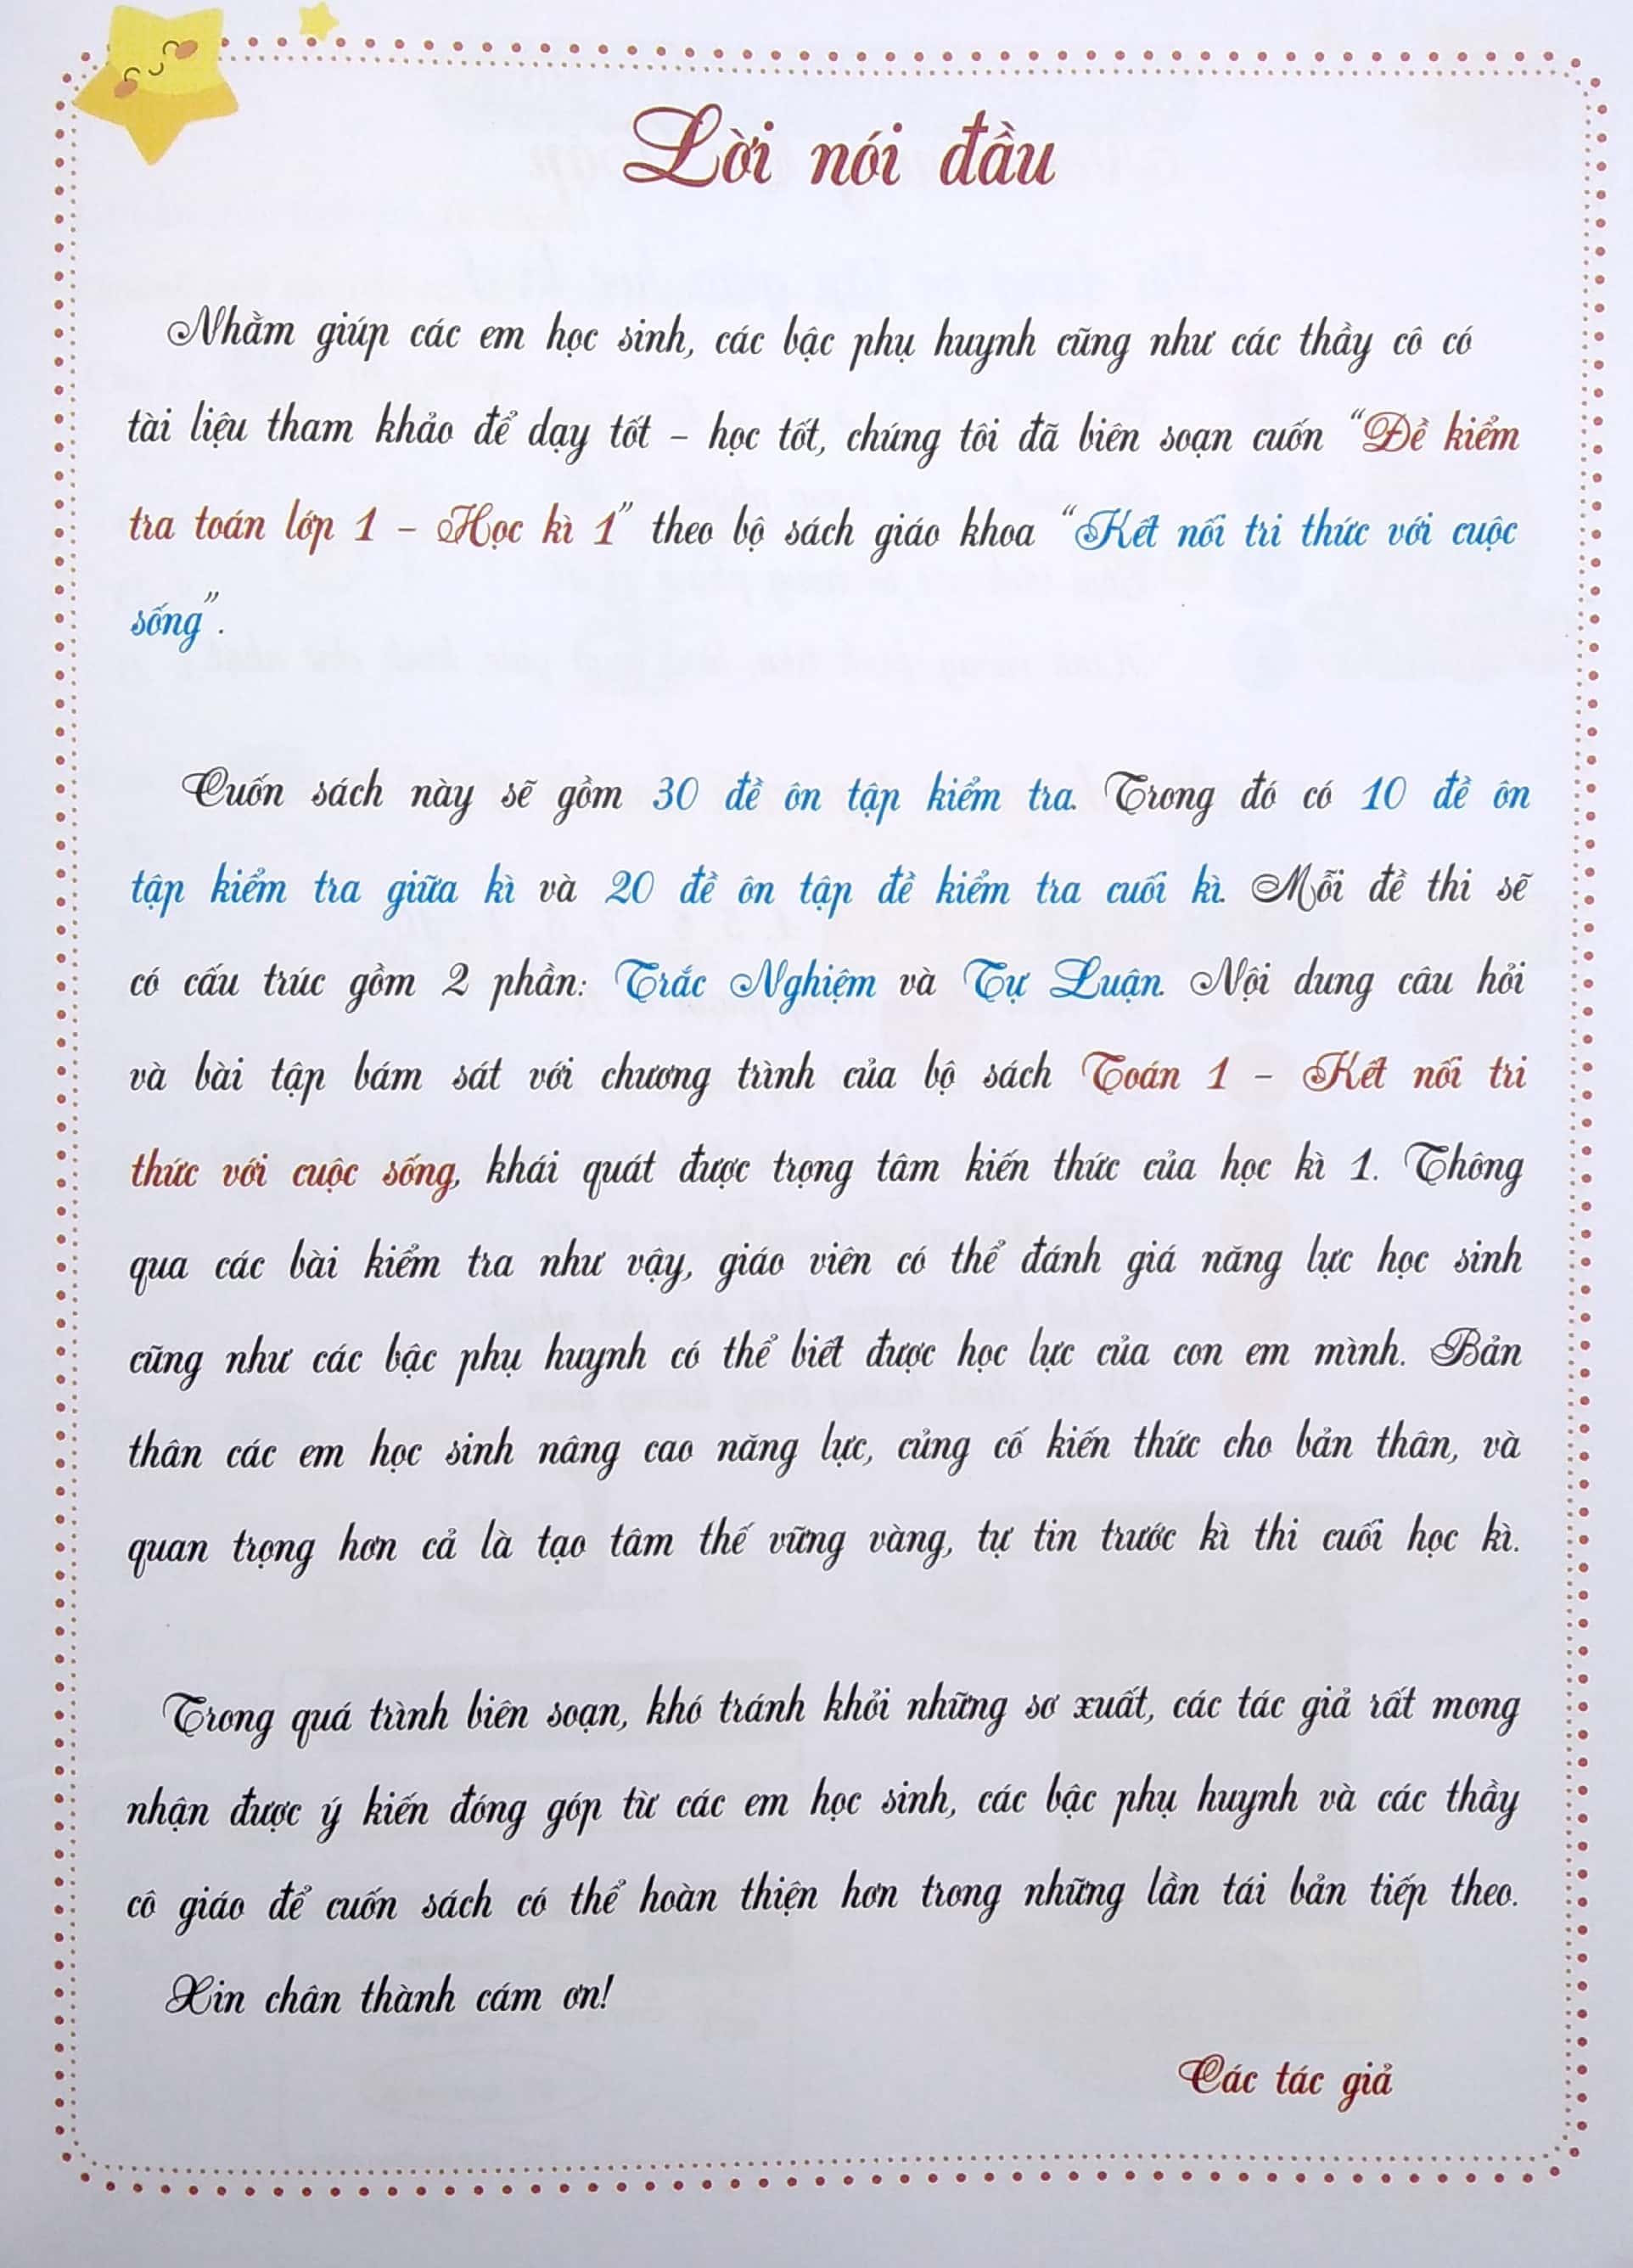 Lời nói đầu
Nhằm giúp các em học sinh, các bậc phụ huynh cũng như các thầy cô có
tài liệu tham khảo để dạy tốt – học tốt, chúng tôi đã biên soạn cuốn “Đề kiểm
tra toán lớp 1 – Học kì 1” theo bộ sách giáo khoa “Kết nối tri thức với cuộc
sống”.
Cuốn sách này sẽ gồm 30 đề ôn tập kiểm tra. Trong đó có 10 đề ôn
tập kiểm tra giữa kì và 20 đề ôn tập đề kiểm tra cuối kì. Mỗi đề thi sẽ
có cấu trúc gồm 2 phần: Trắc Nghiệm và Tự Luận. Nội dung câu hỏi
và bài tập bám sát với chương trình của bộ sách Toán 1 – Kết nối tri
thức với cuộc sống, khái quát được trọng tâm kiến thức của học kì 1. Thông
qua các bài kiểm tra như vậy, giáo viên có thể đánh giá năng lực học sinh
cũng như các bậc phụ huynh có thể biết được học lực của con em mình. Bản
thân các em học sinh nâng cao năng lực, củng cố kiến thức cho bản thân, và
quan trọng hơn cả là tạo tâm thế vững vàng, tự tin trước kì thi cuối học kì.
Trong quá trình biên soạn, khó tránh khỏi những sơ xuất, các tác giả rất mong
nhận được ý kiến đóng góp từ các em học sinh, các bậc phụ huynh và các thầy
cô giáo để cuốn sách có thể hoàn thiện hơn trong những lần tái bản tiếp theo.
Xin chân thành cám ơn!
Các tác giả